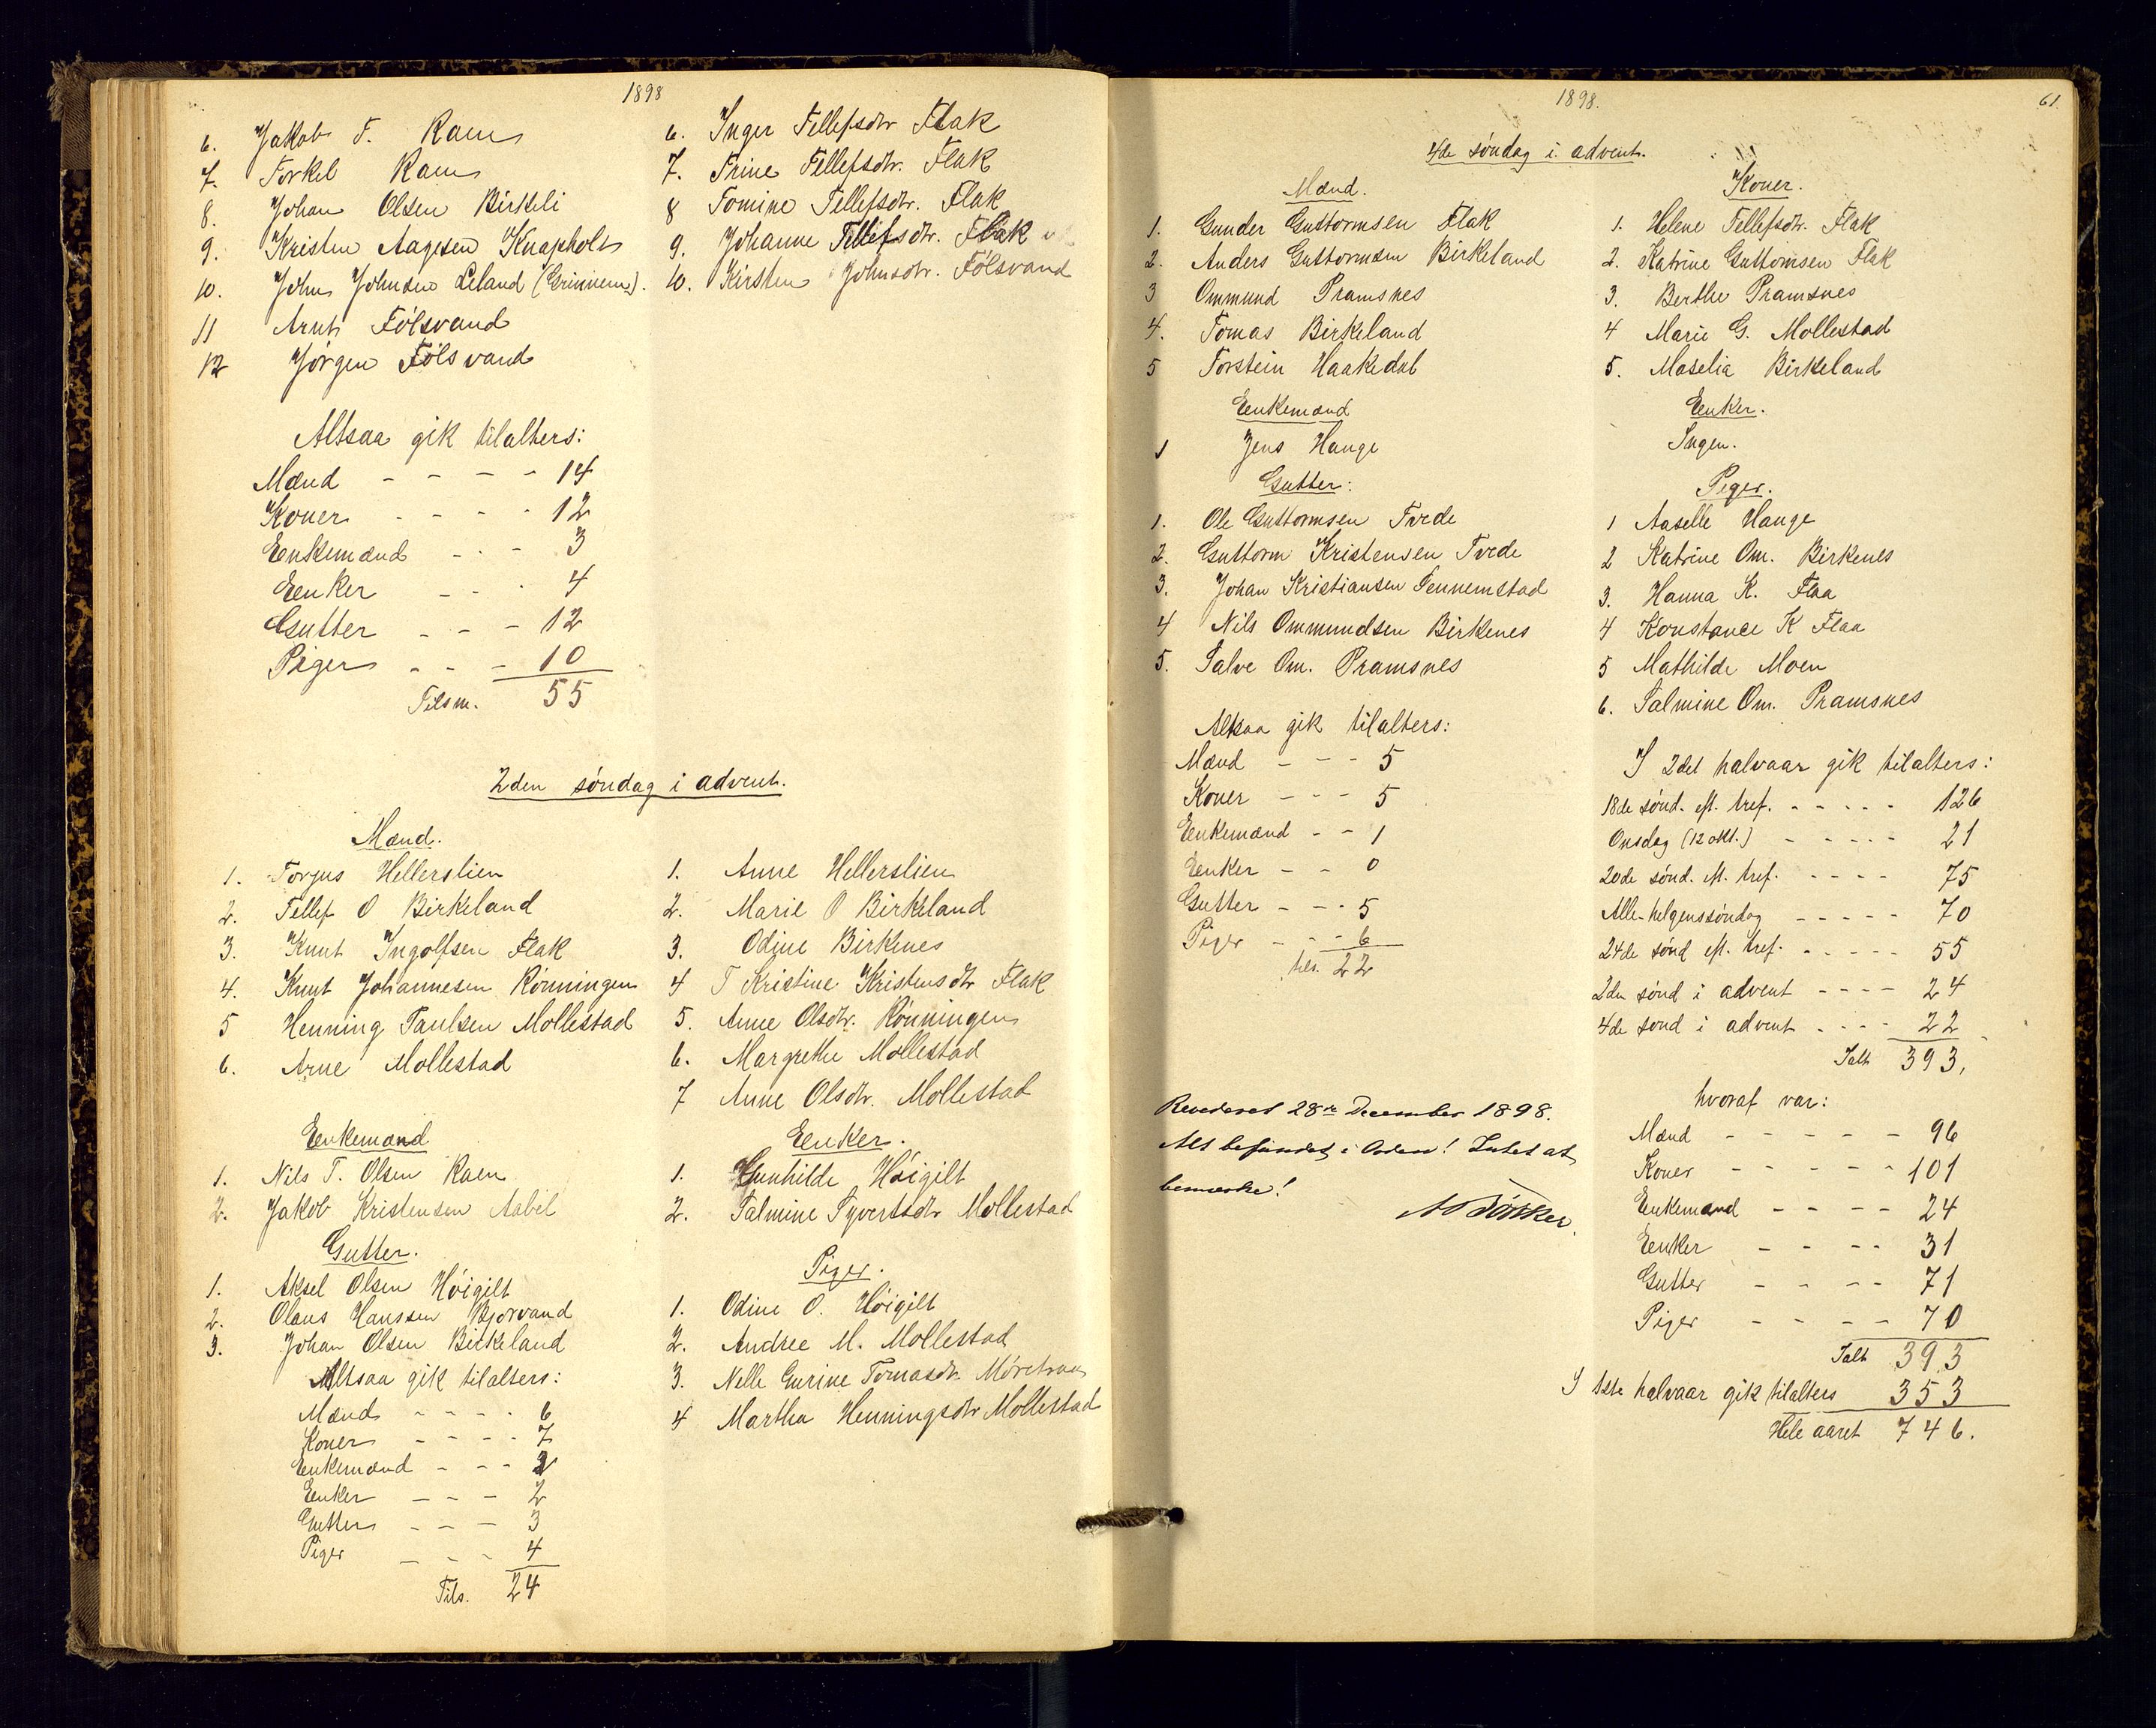 1898
6. Jakob T. Raen
7. Torkel Raen
8. Johan Olsen Birkeli
9. Kristen Aagesen Knapholt
10. John Johnsen Leland (Grinnem).
11 Arnt Fölsvand
12 Jörgen Fölsvand
6. Inger Tellefsdtr Flak
7. Trine Tellefsdtr. Flak
8 Tomine Tellefsdtr. Flak
9. Johanne Tellefsdtr. Flak
10. Kirsten Johnsdtr. Fölsvand
Altsaa gik tilalters:
Mænd - - - - 14
Koner - - - - 12
Eenkemænd - - - 3
Eenker - - - 4
Gutter - - - 12
Piger - - - 10
Tilsm. 55
2den söndag i advent.
Mænd.
1. Torjus Hellerslien
2. Tellef O Birkeland
3. Knut Ingolfsen Flak
4. Knut Johannesen Rönningen
5 Henning Paulsen Mollestad
6. Arne Mollestad
1. Anne Hellerslien
2. Marie O Birkeland
3. Odine Birkenes
4 T Kristine Kristensdtr Flak
5. Anne Olsdtr. Rönningen
6. Margrethe Mollestad
7 Anne Olsdtr. Mollestad
Eenkemænd
1. Nils T. Olsen Raen
2. Jakob Kristensen Aabel
Eenker.
1. Gunhilde Höigilt
2. Salmine Syvertsdtr Mollestad
Gutter.
1. Aksel Olsen Höigilt
2. Olaus Hanssen Bjorvand
3. Johan Olsen Birkeland
Piger.
1. Odine O. Höigilt
2. Andree M. Mollestad
3. Nelle Gurine Tomasdtr.
4 Martha Henningsdtr Mollestad
Altsaa gik tilalters:
Mænd - - - - 6
Koner - - - - 7
Eenkemænd - - - 2
Eenker - - - 2
Gutter - - - 3
Piger - - - 4
Tils. 24
1898.
61.
4de söndag i advent.
Mænd.
1. Gunder Guttormsen Flak
2. Anders Guttormsen Birkeland
3 Ommund Pramsnes
4. Tomas Birkeland
5 Torstein Haakedal
Koner.
1. Helene Tellefsdtr. Flak
2. Katrine Guttomsen Flak
3. Berthe Pramsnes
4 Marie G. Mollestad
5. Maselia Birkeland
Eenkemænd
1 Jens Hauge
Eenker.
Ingen.
Gutter:
1. Ole Guttormsen Tvede
2. Guttorm Kristensen Tvede
3. Johan Kristiansen Tennemstad
4 Nils Ommundsen Birkenes
5. Salve Om. Pramsnes
Piger.
1 Aaselle Hauge
2 Katrine Om. Birkenes
3. Hanna K. Flaa
4 Konstance K Flaa
5 Mathilde Moen
6. Salmine Om. Pramsnes
Altsaa gik tilalters:
Mænd - - - 5
Koner - - - 5
Eenkemænd - - 1
Eenker - - 0
Gutter - - - 5
Piger - - - 6
tils. 22
Revideret 28de December 1898.
Alt befundet i Orden! Intet at
bemærke!
I 2det halvaar gik tilalters:
18de sönd. eft. tref. - - - - - 126
Onsdag (12 okt.) - - - - - 21
20de sönd. eft. tref. - - - - 75
Alle-helgenssöndag - - - - - 70
24de sönd eft. tref. - - - - - 55
2den sönd i advent - - - - 24
4de sönd i advent - - - - 22
Ialt 393,
hvoraf var:
Mænd - - - - - 96
Koner - - - - - 101
Eenkemænd - - - - 24
Eenker - - - - 31
Gutter - - - - 71
Piger - - - - 70
Ialt 393
I 1ste halvaar gik tilalters 353
Hele aaret 746.